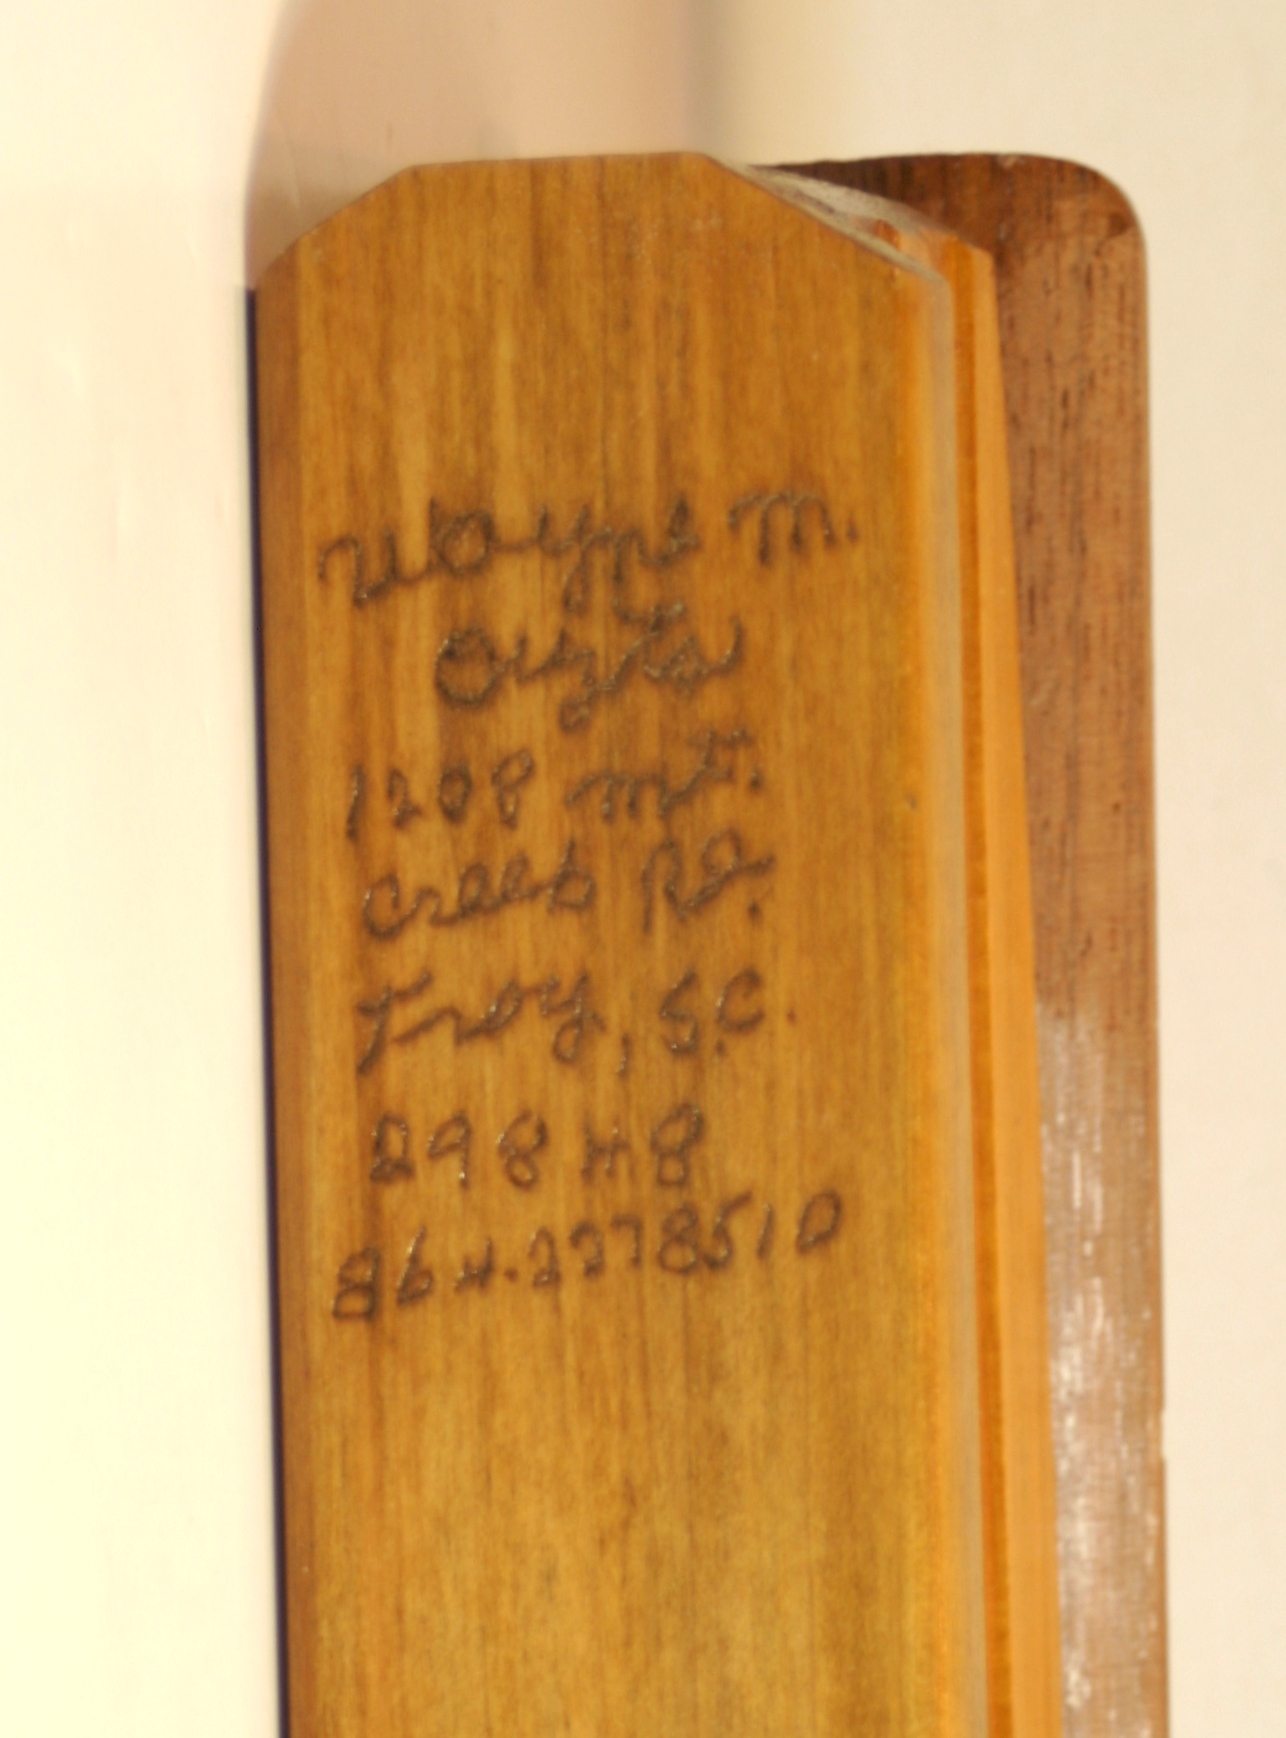 Wayne M.
1208 Mt.
Creek Rd.
Troy, S.C.
29848
864.2278510